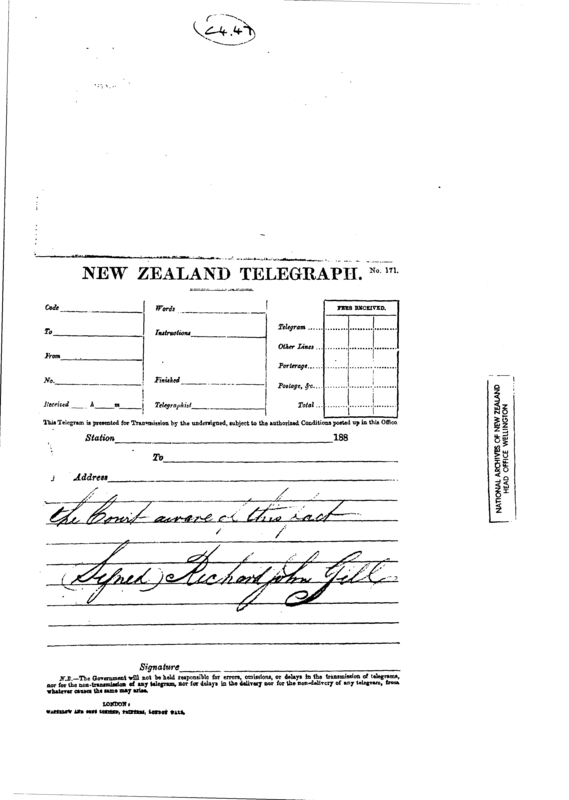 C4.47
NEW ZEALAND TELEGRAPH. No. 171.
Code
Words
FEES RECEIVED.
To
Instructions
Telegram
Other Lines
From
Porterage
No.
Finished
Postage, &c.
Received h m
Telegraphist
Total
This Telegram is presented for Transmission by the undersigned, subject to the authorised Conditions posted up in this Office
Station 188
To
Address
the Court aware of this fact
(Signed) Richard John Gill
Signature
N.B.—The Government will not be held responsible for errors, omissions, or delays in the transmission of telegrams,
nor for the non-transmission of any telegram, nor for delays in the delivery nor for the non-delivery of any telegram, from
whatever causes the same may arise.
LONDON:
WATERLOW AND SONS LIMITED, PRINTERS, LONDON WALL.
NATIONAL ARCHIVES OF NEW ZEALAND
HEAD OFFICE WELLINGTON